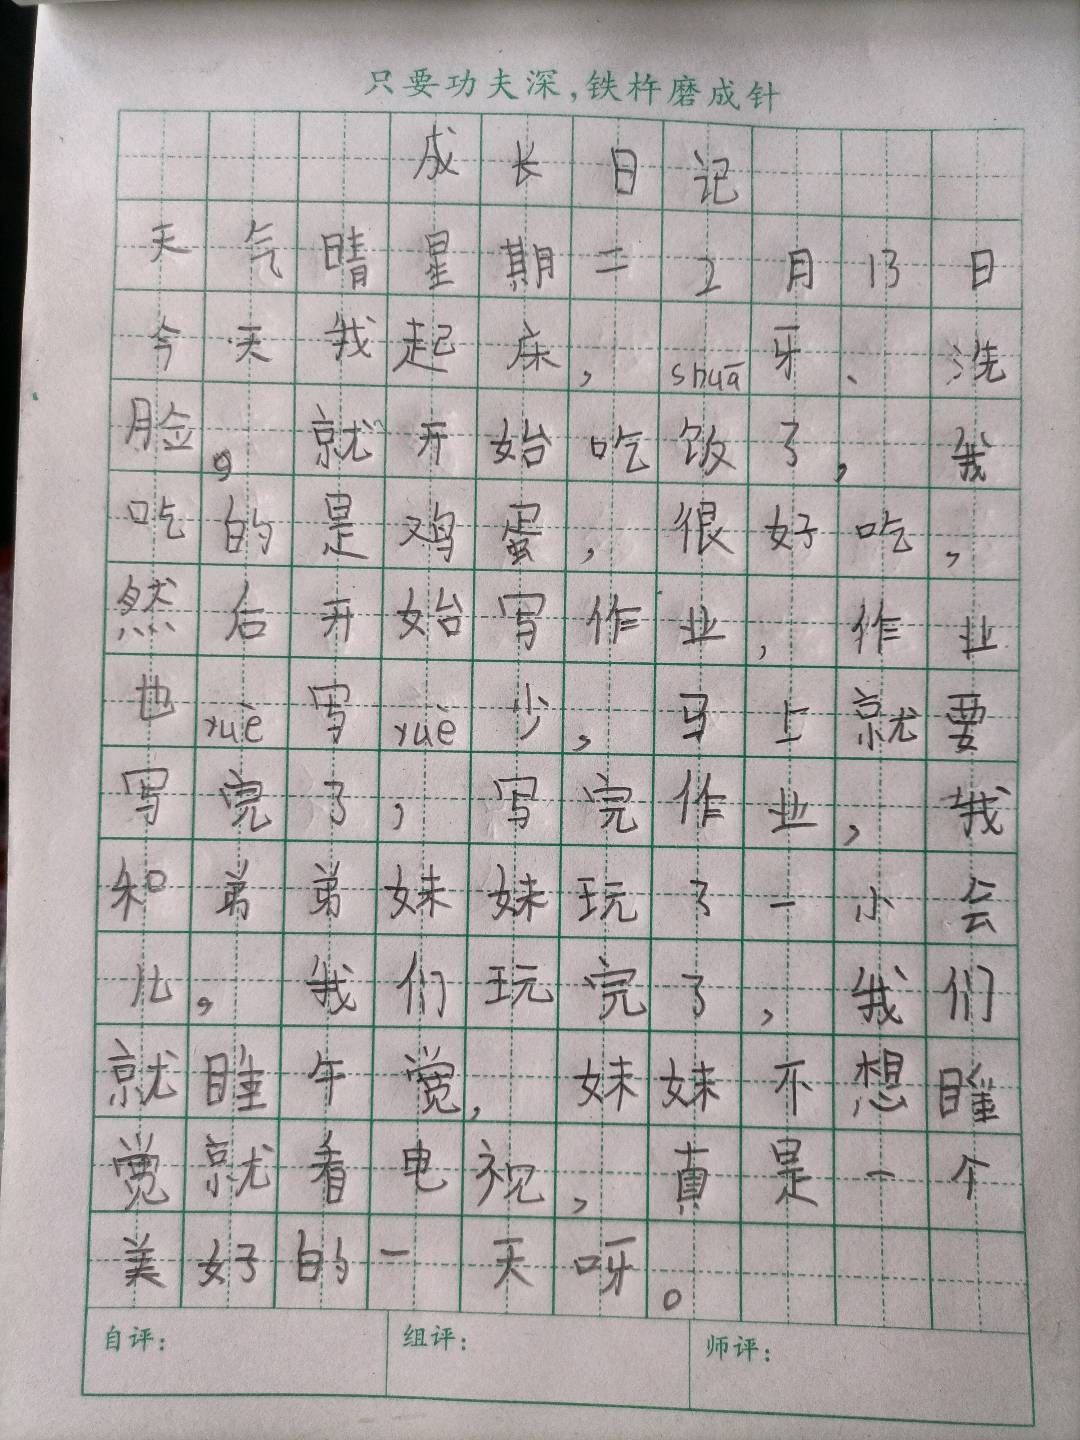 只要功夫深,铁杵磨成针
成长日记
天气晴星期二2月13日
今天我起床,shuā牙、洗
脸,就开始吃饭了,我
吃的是鸡蛋,很好吃,
然后开始写作业,作业
也yuè写yuè少,马上就要
写完了,写完作业,我
和弟弟妹妹玩了一小会
儿,我们玩完了,我们
就睡午觉,妹妹不想睡
觉就看电视,真是一个
美好的一天呀。
自评: 组评: 师评: